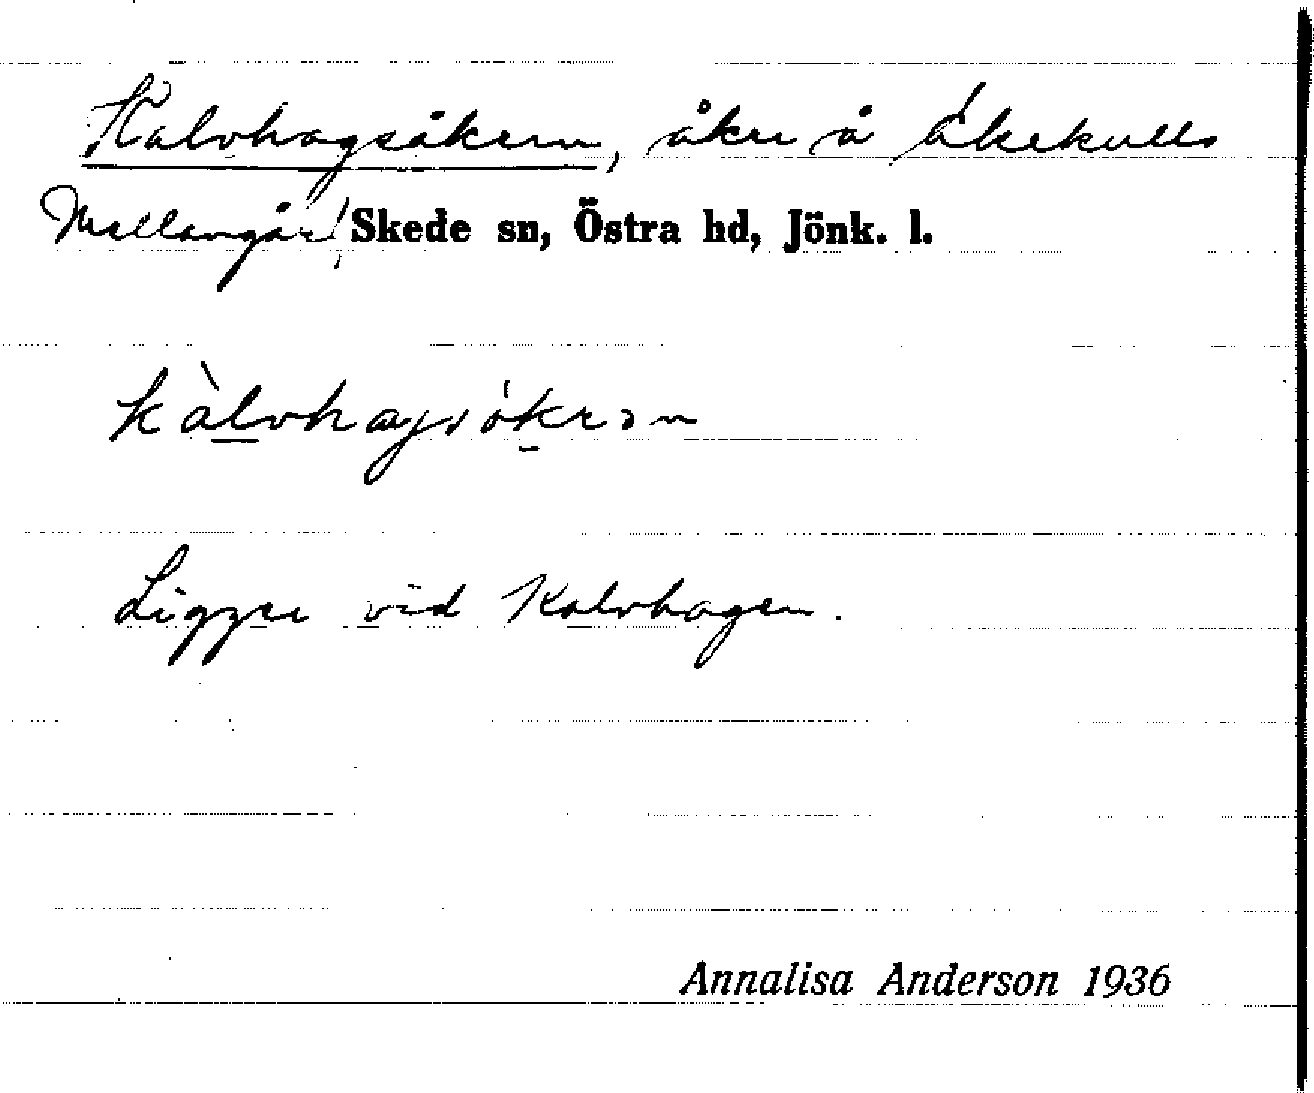 Kalvhagsåkern, åker å Åkekulls
Mellangård, Skede sn, Östra hd, Jönk. l.
kàlvhagsókrən
Ligger vid Kalvhagen.
Annalisa Anderson 1936